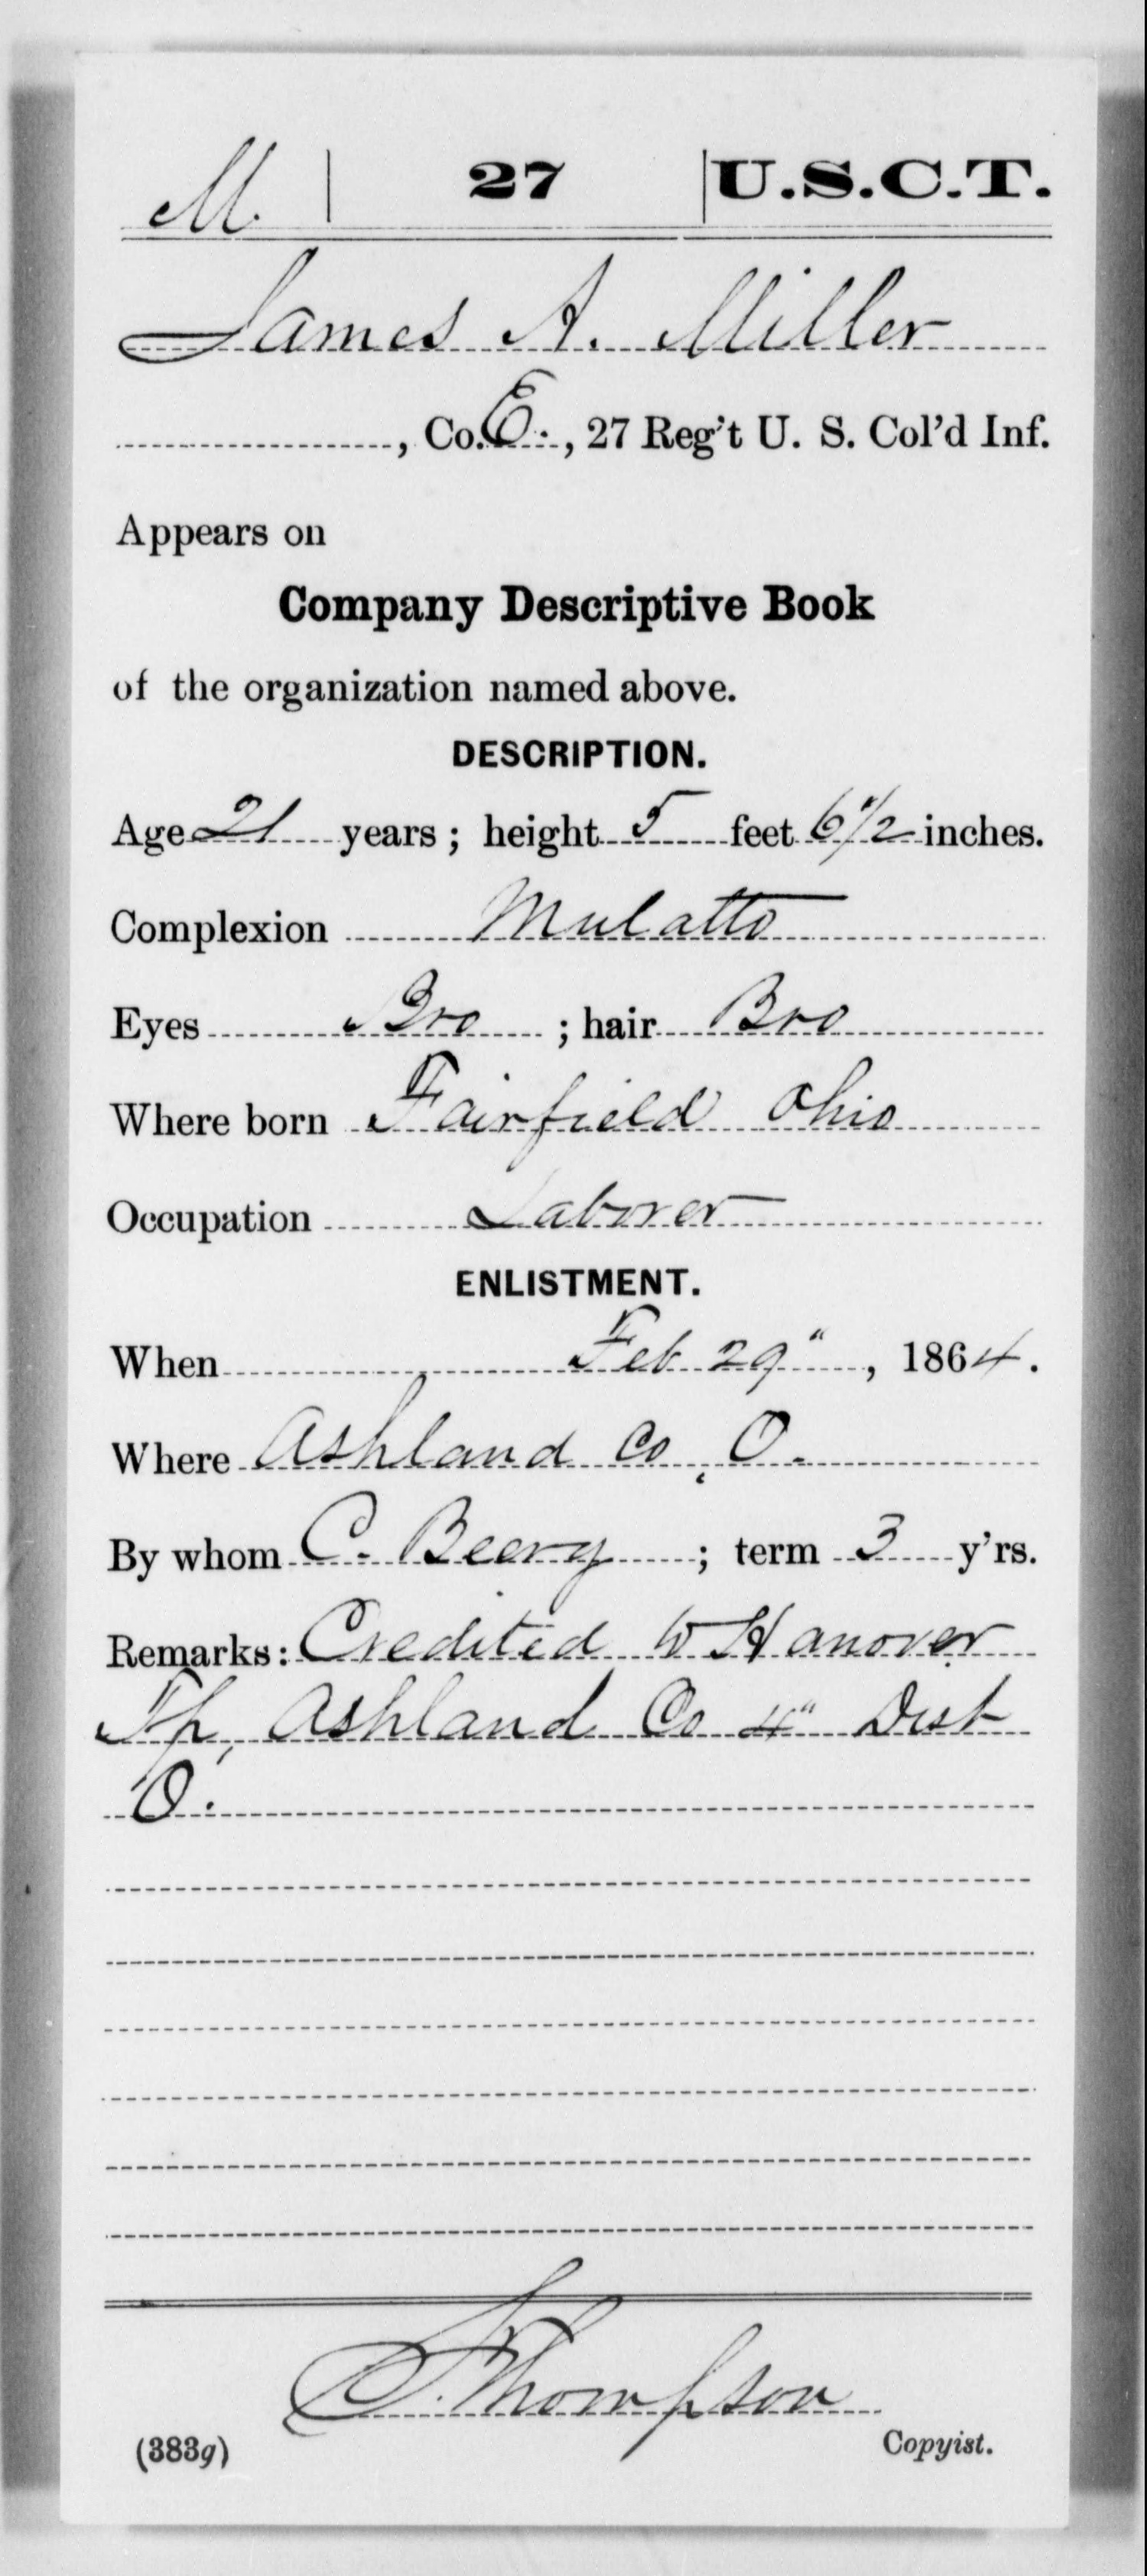 M. 27 U.S.C.T.
James A. Miller
, Co. E., 27 Reg't U. S. Col'd Inf.
Appears on
Company Descriptive Book
of the organization named above.
DESCRIPTION.
Age 21 years; height 5 feet 6 1/2 inches.
Complexion Mulatto
Eyes Bro ; hair Bro
Where born Fairfield Ohio
Occupation Laborer
ENLISTMENT.
When Feb 29", 1864.
Where Ashland Co, O.
By whom C. Beery ; term 3 y'rs.
Remarks: Credited to Hanover
Tp, Ashland Co 4" Dist
O.
Thompson
(383g) Copyist.